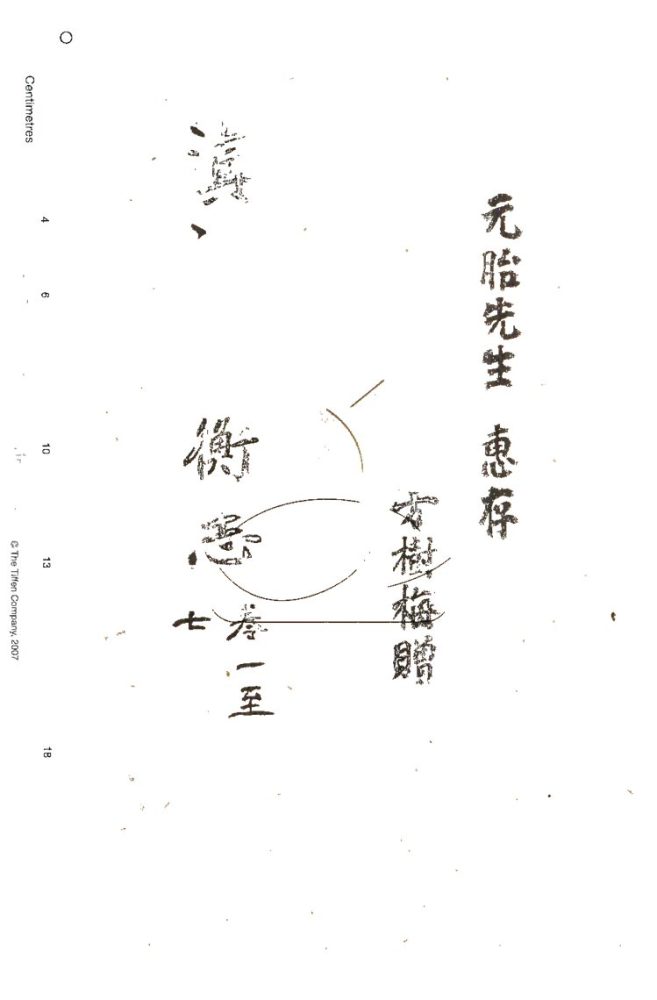 元胎先生 惠存
方樹梅贈
滇 衡志
卷一至
七
Centimetres 4 6 10 13 18
© The Tiffen Company, 2007